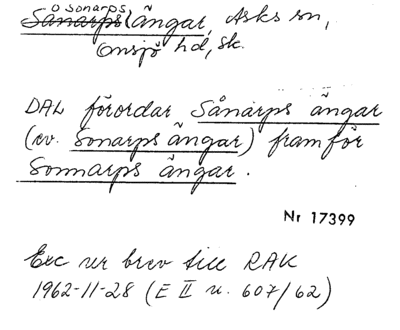 Osonarps
Sånarps ängar, Asks sn,
Onsjö hd, Sk.
DAL förordar Sånarps ängar
(ev. Sonarps ängar) framför
Sonnarps ängar.
Nr 17399
Exc ur brev till RAK
1962-11-28 (E II u. 607/62)